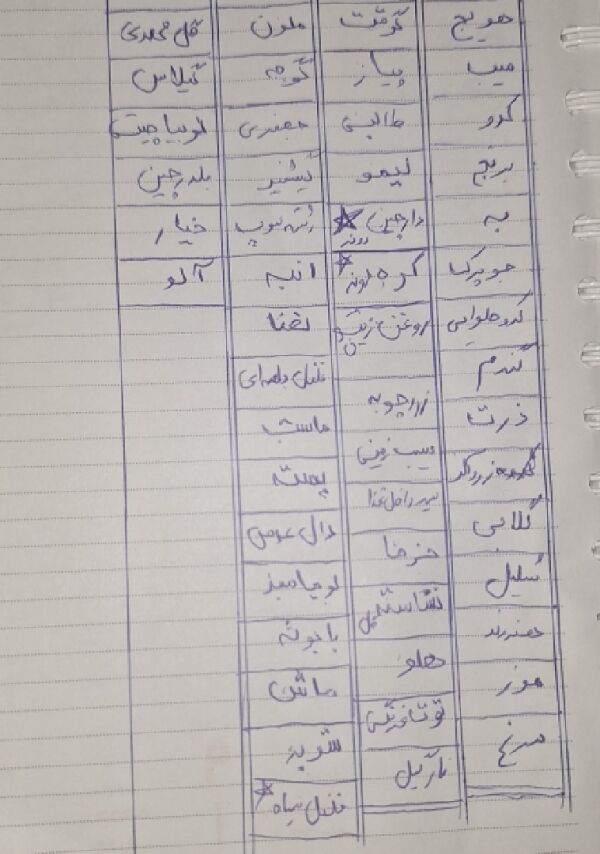 هویج
سیب
کدو
برنج
به
جو پرک
کدو حلوایی
گندم
ذرت
زرده
گلابی
شلیل
چغندر
موز
مرغ
گوشت
پیاز
طالبی
لیمو
دارچین
گوجه
روغن زیتون
زردچوبه
سیب زمینی
سیر داخل غذا
خرما
نشاسته
هلو
توت فرنگی
نارگیل
ملون
گوجه
جعفری
گشنیز
رشته سوپ
انبه
نعنا
فلفل دلمه‌ای
ماست
پسته
دال عدس
لوبیا سبز
بابونه
ماش
شوید
فلفل سیاه
گل محمدی
گیلاس
لوبیا چیتی
بلدرچین
خیار
آلو